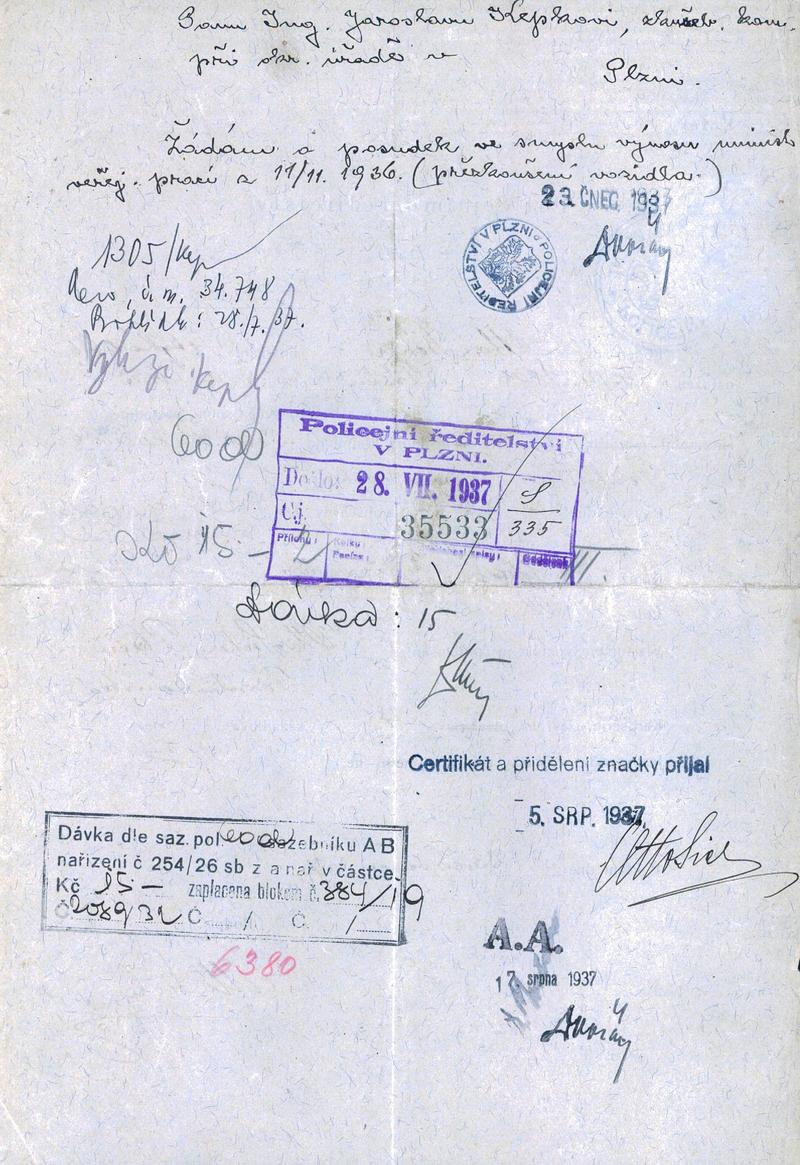 Panu Ing. Jaroslavu Kepkovi, zkušeb. kom.
při okr. úřadě v
Plzni.
Žádám o posudek ve smyslu výnosu minist.
veřej. prací z 11/11. 1936. (přezkoušení vozidla.)
23. ČNEC 1937
POLICEJNÍ ŘEDITELSTVÍ V PLZNI
Dvořák
1305/Kep
34.748
28./7. 37.
600d
Policejní ředitelství
V PLZNI.
Došlo: 28. VII. 1937
Čj. 35533
S
335
Přílohy:
Kolku
Peníze:
Kč 15 -
Dávka: 15
Certifikát a přidělení značky přijal
5. SRP. 1937
Dávka dle saz. pol. 600d sazebníku A B
nařízení č 254/26 sb z a nař v částce
Kč 15 - zaplacena blokem č. 384/19
Č 2089/32 Č. / Č. /
6380
A.A.
17. srpna 1937
Dvořák